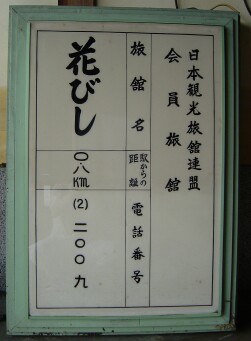 日本観光旅館連盟
会員旅館
旅館名
駅からの
距離
電話番号
花びし
〇.八KM
(2)二〇〇九